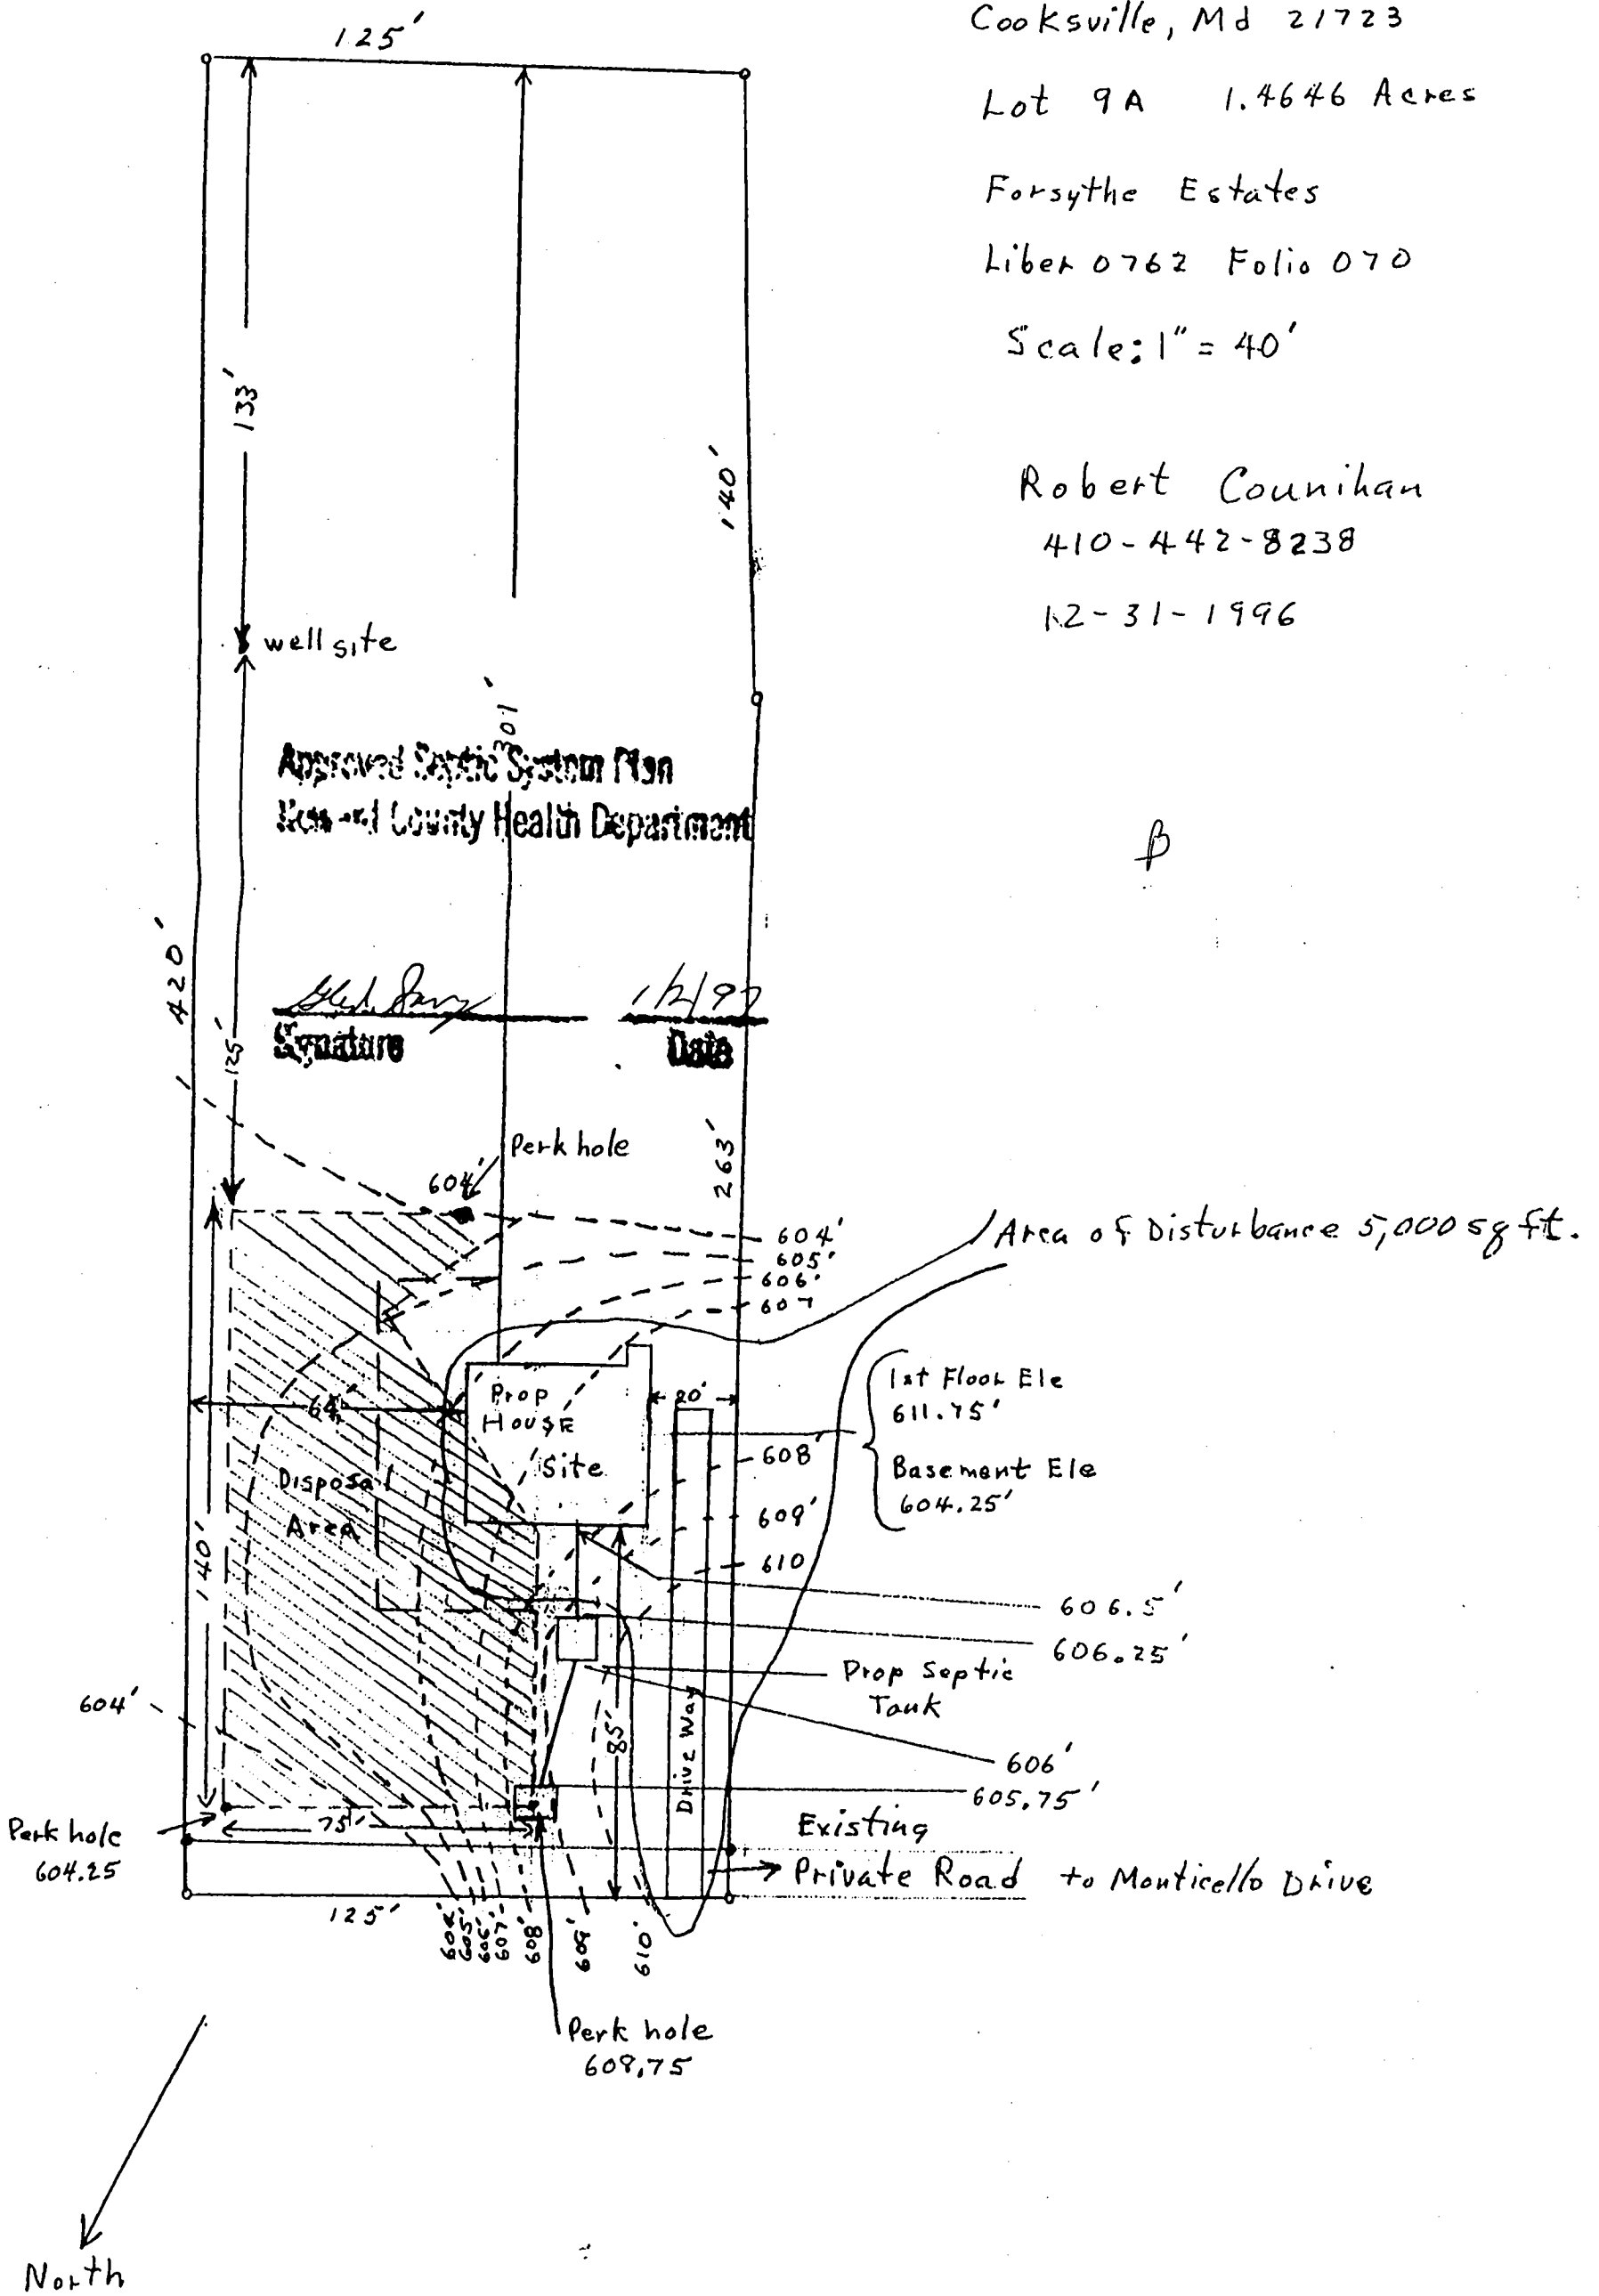 Cooksville, Md 21723
Lot 9A 1.4646 Acres
Forsythe Estates
Liber 0762 Folio 070
Scale: 1" = 40'
Robert Counihan
410-442-8238
12-31-1996
125'
133'
140'
well site
301'
Approved Septic System Plan
Howard County Health Department
420'
125'
1/2/97
Signature
Date
263'
Perk hole
604'
604'
605'
606'
607
Area of Disturbance 5,000 sq ft.
1st Floor Ele
611.75'
Basement Ele
604.25'
Prop
House
Site
20'
64'
608'
609'
610
Disposal
Area
140'
606.5'
606.25'
Prop Septic
Tank
606'
605.75'
604'
85'
Drive Way
Perk hole
604.25
75'
Existing
Private Road to Monticello Drive
125'
604'
605'
606'
607'
608'
609'
610'
Perk hole
608.75
North